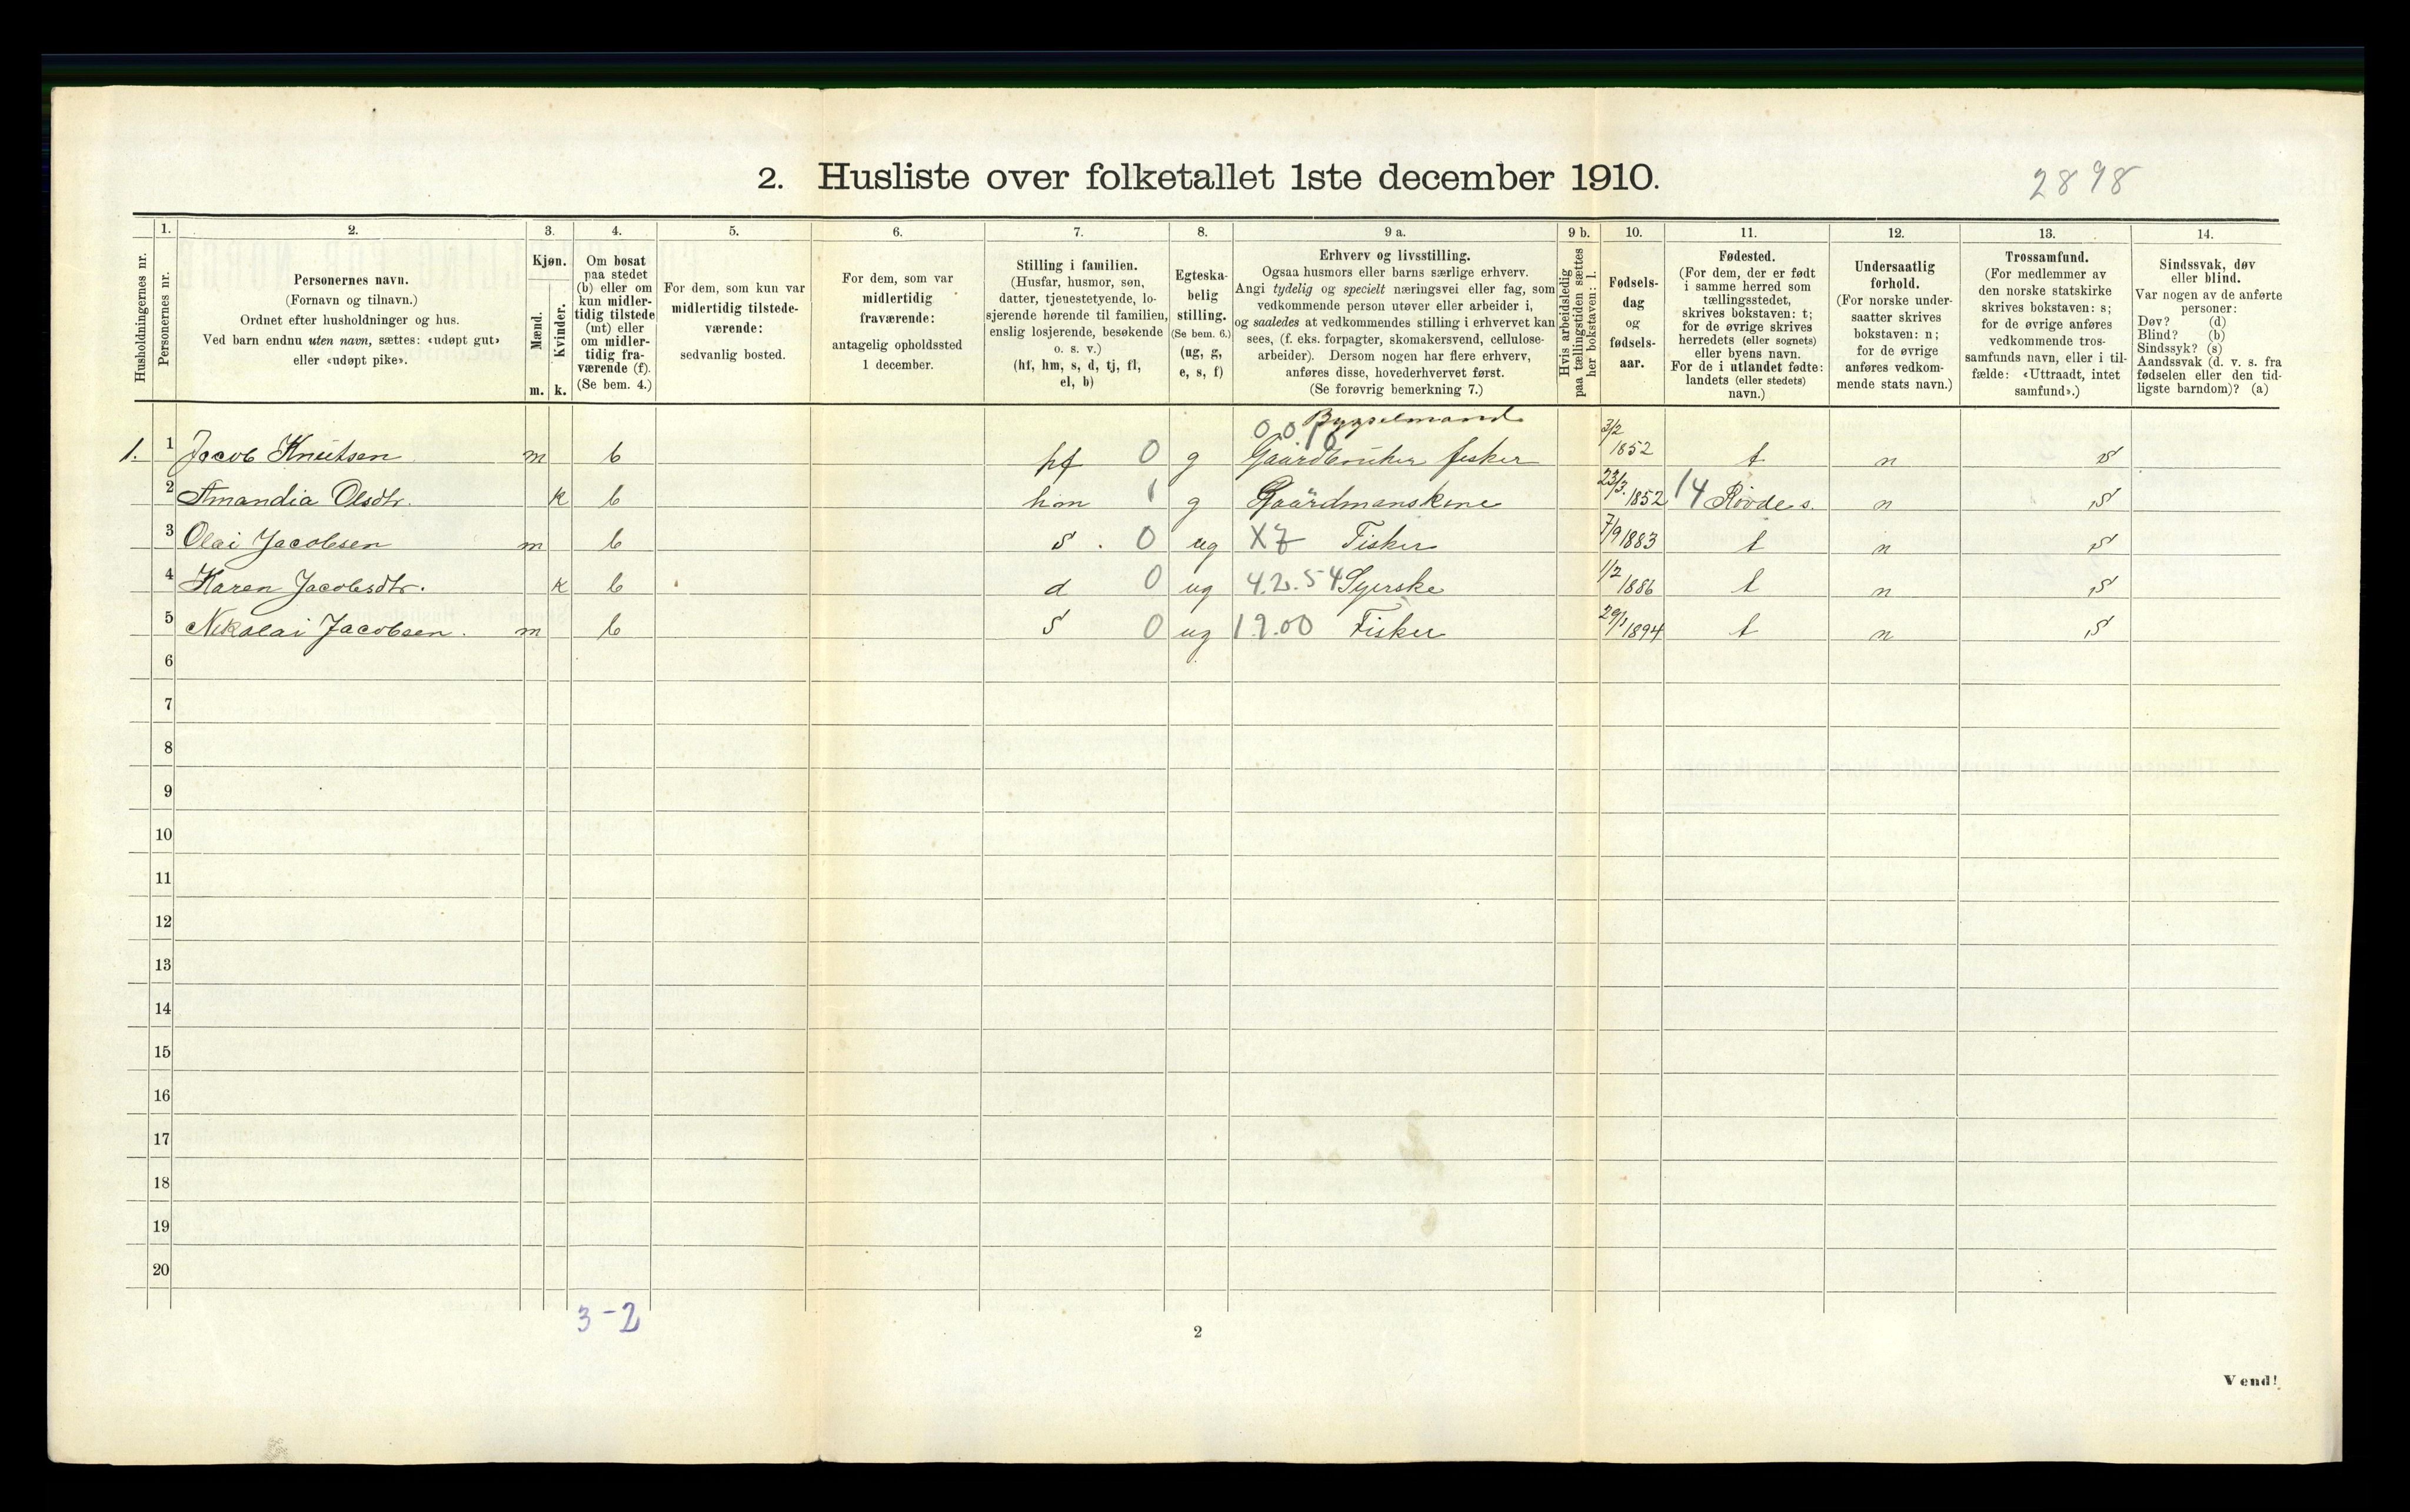 2. Husliste over folketallet 1ste december 1910.
2898
1. 2. 3. 4. 5. 6. 7. 8. 9 a. 9 b. 10. 11. 12. 13. 14.
Husholdningernes nr.
Personernes nr.
Personernes navn.
(Fornavn og tilnavn.)
Ordnet efter husholdninger og hus.
Ved barn endnu uten navn, sættes: «udøpt gut»
eller «udøpt pike».
Kjøn.
Mænd.
Kvinder.
m. k.
Om bosat
paa stedet
(b) eller om
kun midler-
tidig tilstede
(mt) eller
om midler-
tidig fra-
værende (f).
(Se bem. 4.)
For dem, som kun var
midlertidig tilstede-
værende:
sedvanlig bosted.
For dem, som var
midlertidig
fraværende:
antagelig opholdssted
1 december.
Stilling i familien.
(Husfar, husmor, søn,
datter, tjenestetyende, lo-
sjerende hørende til familien,
enslig losjerende, besøkende
o. s. v.)
(hf, hm, s, d, tj, fl,
el, b)
Egteska-
belig
stilling.
(Se bem. 6.)
(ug, g,
e, s, f)
Erhverv og livsstilling.
Ogsaa husmors eller barns særlige erhverv.
Angi tydelig og specielt næringsvei eller fag, som
vedkommende person utøver eller arbeider i,
og saaledes at vedkommendes stilling i erhvervet kan
sees, (f. eks. forpagter, skomakersvend, cellulose-
arbeider). Dersom nogen har flere erhverv,
anføres disse, hovederhvervet først.
(Se forøvrig bemerkning 7.)
Hvis arbeidsledig
paa tællingstiden sættes
her bokstaven: l.
Fødsels-
dag
og
fødsels-
aar.
Fødested.
(For dem, der er født
i samme herred som
tællingsstedet,
skrives bokstaven: t;
for de øvrige skrives
herredets (eller sognets)
eller byens navn.
For de i utlandet fødte:
landets (eller stedets)
navn.)
Undersaatlig
forhold.
(For norske under-
saatter skrives
bokstaven: n;
for de øvrige
anføres vedkom-
mende stats navn.)
Trossamfund.
(For medlemmer av
den norske statskirke
skrives bokstaven: s;
for de øvrige anføres
vedkommende tros-
samfunds navn, eller i til-
fælde: «Uttraadt, intet
samfund».)
Sindssvak, døv
eller blind.
Var nogen av de anførte
personer:
Døv? (d)
Blind? (b)
Sindssyk? (s)
Aandssvak (d. v. s. fra
fødselen eller den tid-
ligste barndom)? (a)
Bygselmand
1. 1 Jacob Knutsen m b hf 0 g Gaardbruker fisker 3/2 1852 t n s
2 Amandia Olsdtr. k b hm 1 g Gaardmanskone 23/3 1852 14 Rovde s. n s
3 Olai Jacobsen m b s. 0 ug X7 Fisker 7/9 1883 t n s
4 Karen Jacobsdtr. k b d 0 ug 4.2.54 Syerske 1/2 1886 t n s
5 Nikolai Jacobsen. m b s 0 ug 19.00 Fisker 29/1 1894 t n s
6
7
8
9
10
11
12
13
14
15
16
17
18
19
20
3-2
2
Vend!